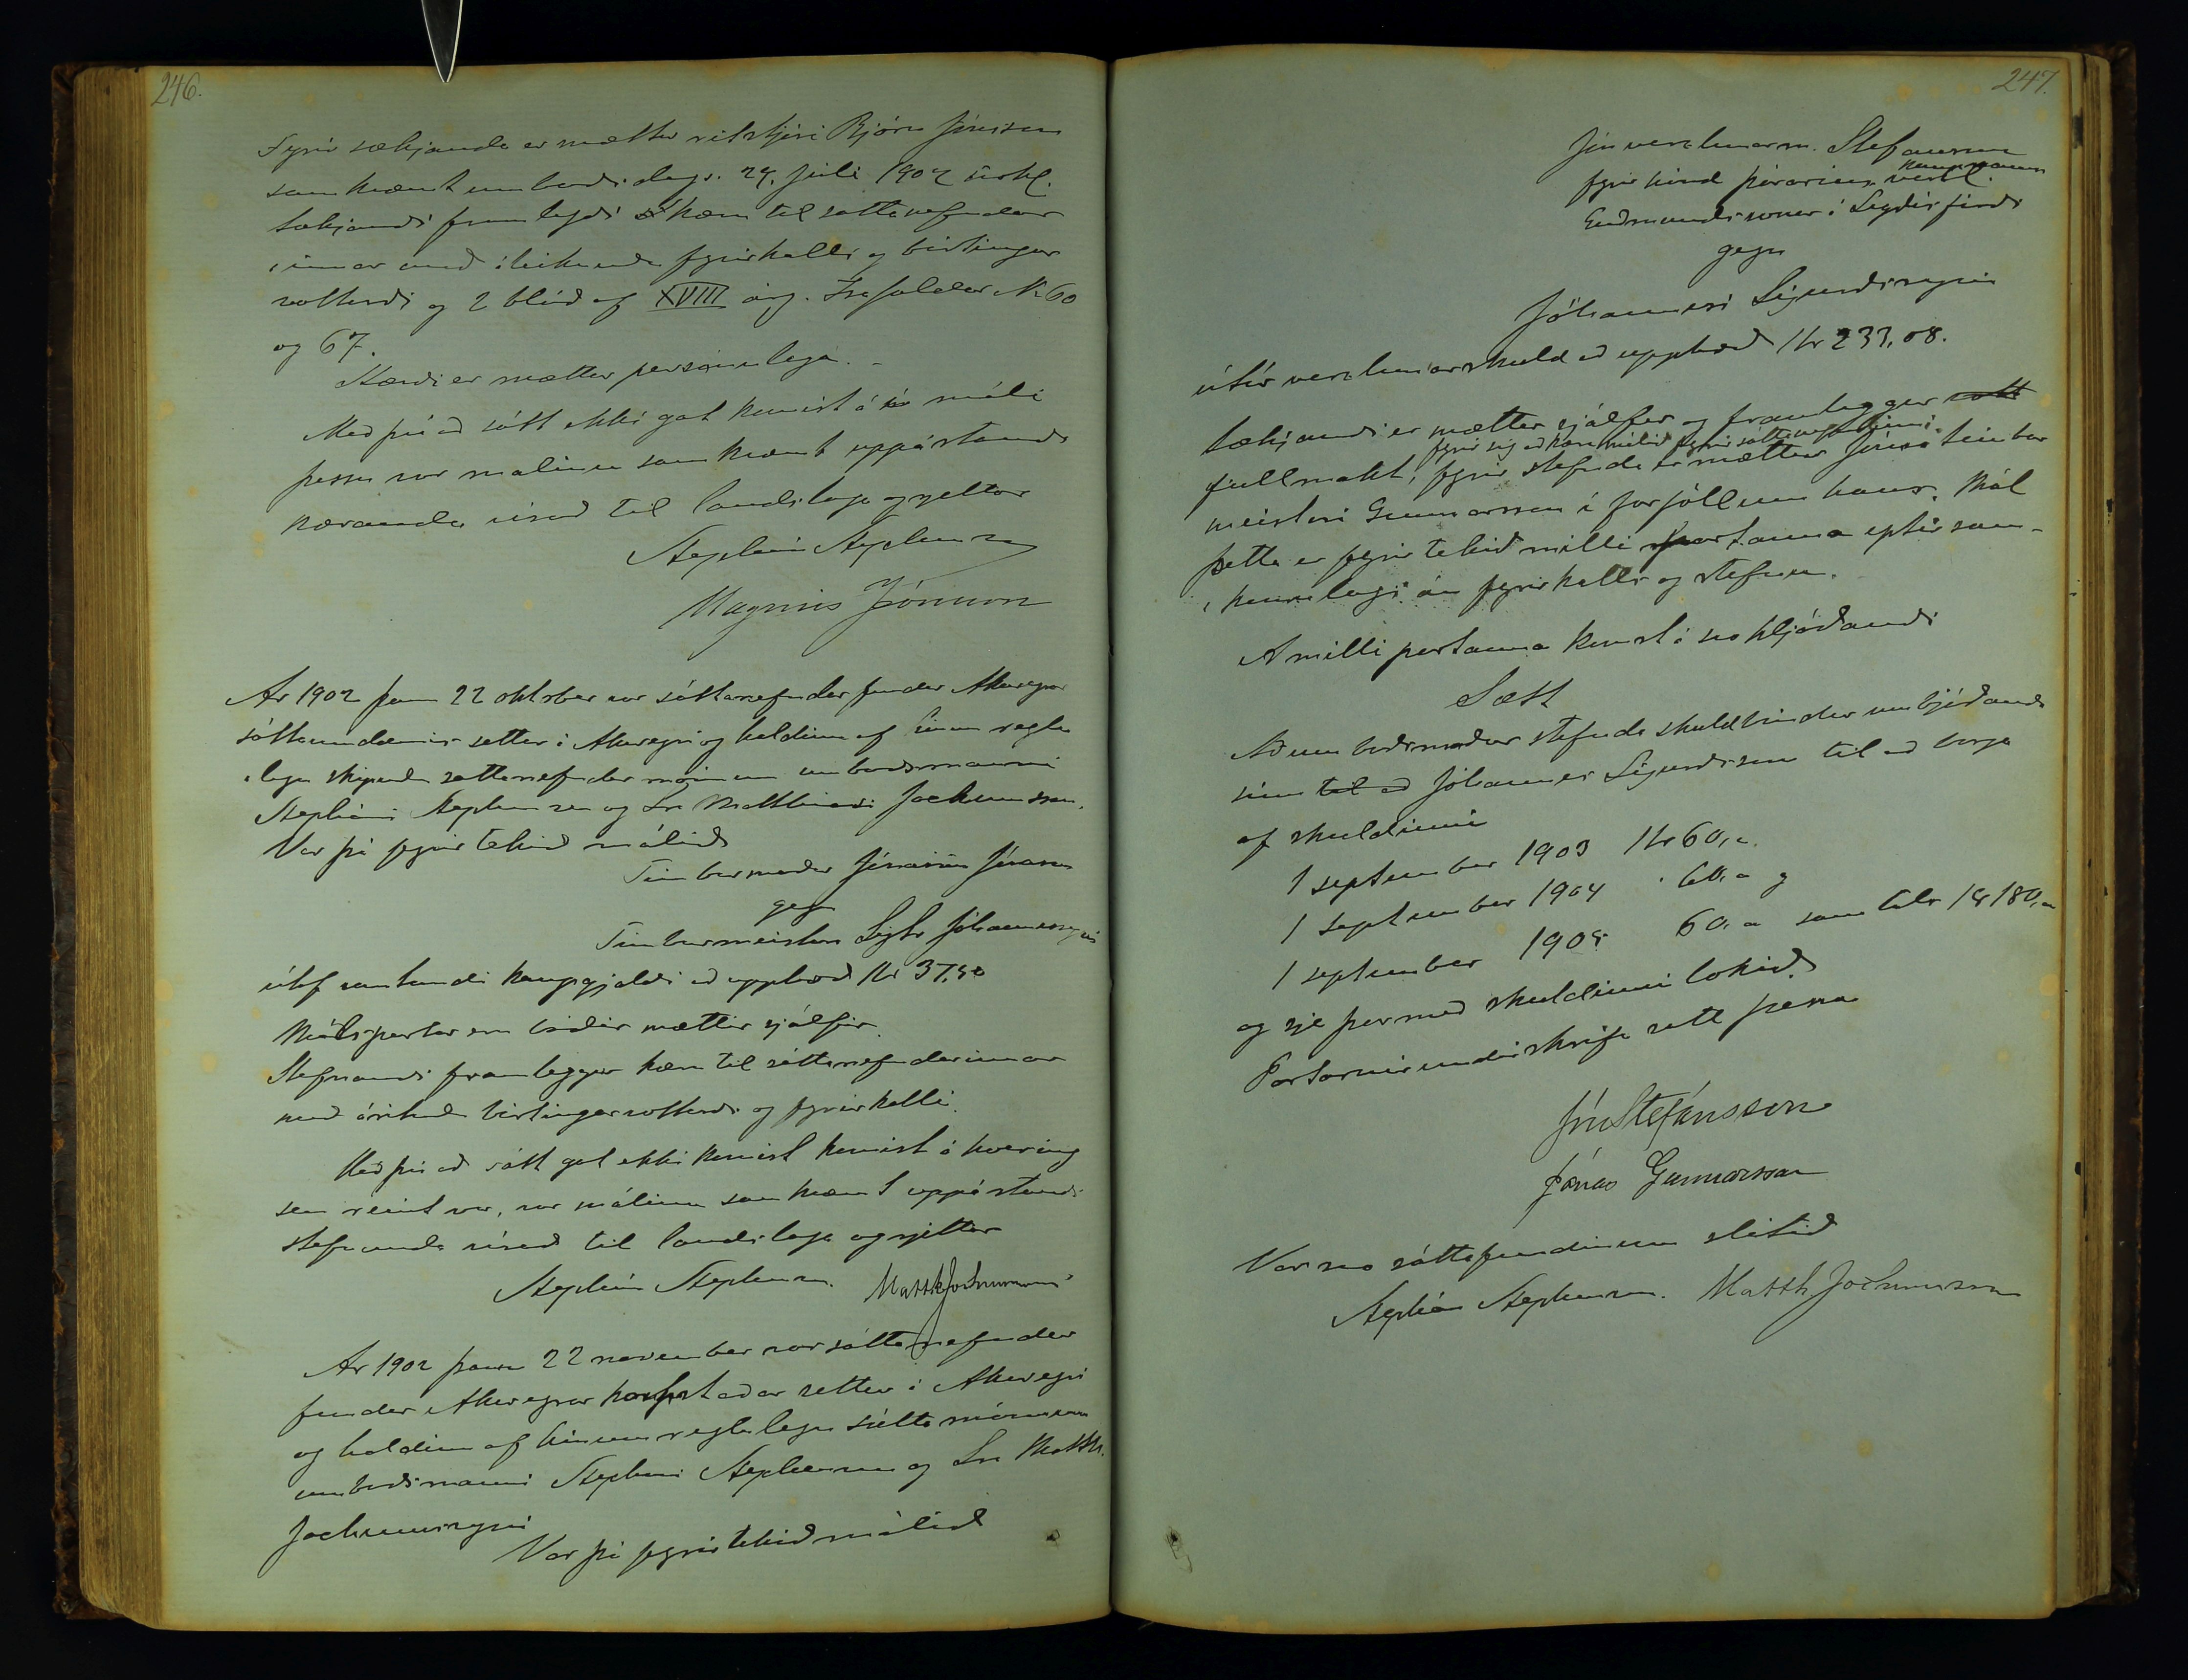 246.
Fyrir sækjanda er mættur ritstjóri Björn Jónsson
samkvæmt umboði dags. 29. júli 1902
Sækjandi framlagði kæru til sáttanefndar
innar með áteiknuðu fyrirkalli og birtingar
vottorði og 2 blöð af XVIII árg. Ísafoldar No 60
og 67.
Kærði er mættur persónulega. -
Með því að sátt ekki gat komist á í máli
þessu var málinu samkvæmt uppástandi
kæranda vísað til landslaga og rjettar
Stephán Stephensen
Magnús Jónsson
Ar 1902 þann 22 oktober var sáttanefndar fundur Akureyrar
sáttaumdæmis settur i Akureyri og haldinn af hinum reglu
-legu skipuðu sáttanefndar mönnum umboðsmanni
Stepháni Stephensen og Sra Matthiasi Jochumssyni.
Var þá fyrir tekið málið
Timburmaður Jónasson
gegn
Timburmeistara Sigtr Jóhannessyni
útaf vantandi kaupgjaldi að upphæð Kr 37,50
Málspartar eru báðir mættir sjálfir.
Stefnandi framleggur kæru til sáttanefndarinnar
með árituðu birtingarvottorði og fyrirkalli.
Með því að sátt gat ekki komist komist á hvering
sem reint var, var málinu samkvæmt uppástandi
stefnanda vísað til landslaga og rjettar
Stephán Stephensen. Matth Jochumsson
Ar 1902 þann 22 november var sáttanefndar
fundur Akureyrar kaupstaðar settur i Akureyri
og haldinn af hinum reglulegu sátta mönnum
umboðsmanni Stepháni Stephensen og Sra Matth.
Jochumssyni
Var þá fyrir tekið málið
247.
Jón verzlunarm. Stefansson
fyrir hönd þórarins kaupmanns
Guðmundssonar i Seyðisfirði
gegn
Jóhannesi Sigurdssyni
útúr verzlunarskuld að upphæð Kr 233,08.
Sækjandi er mættur sjálfur og framleggur
fyrir sig að kæra málið fyrir sáttanefndinni.
fullmakt, fyrir stefnda er mættur Jónas timbur
meistari Gunnarsson í forföllum hans. Mál
þetta er fyrir tekið milli partanna eptir sam-
komulagi án fyrirkalls og stefnu.
A milli partanna komst á svo hljóðandi
Sætt
Að umboðsmaður stefnda skuldbindur umbjóðanda
sinn til að Jóhannes Sigurdsson til að borga
af skuldinni
1 september 1903 Kr 60,"
1 september 1904 " 60, " og
1 september 1905 60, " samtals Kr 180,"
og sje þar með skuldinni lokið.
Partarnir undirskrifa sætt þessa
Jón Stefánsson
Jónas Gunnarsson
Var svo sáttafundinum slitið
Stephán Stephensen. Matth Jochumsson